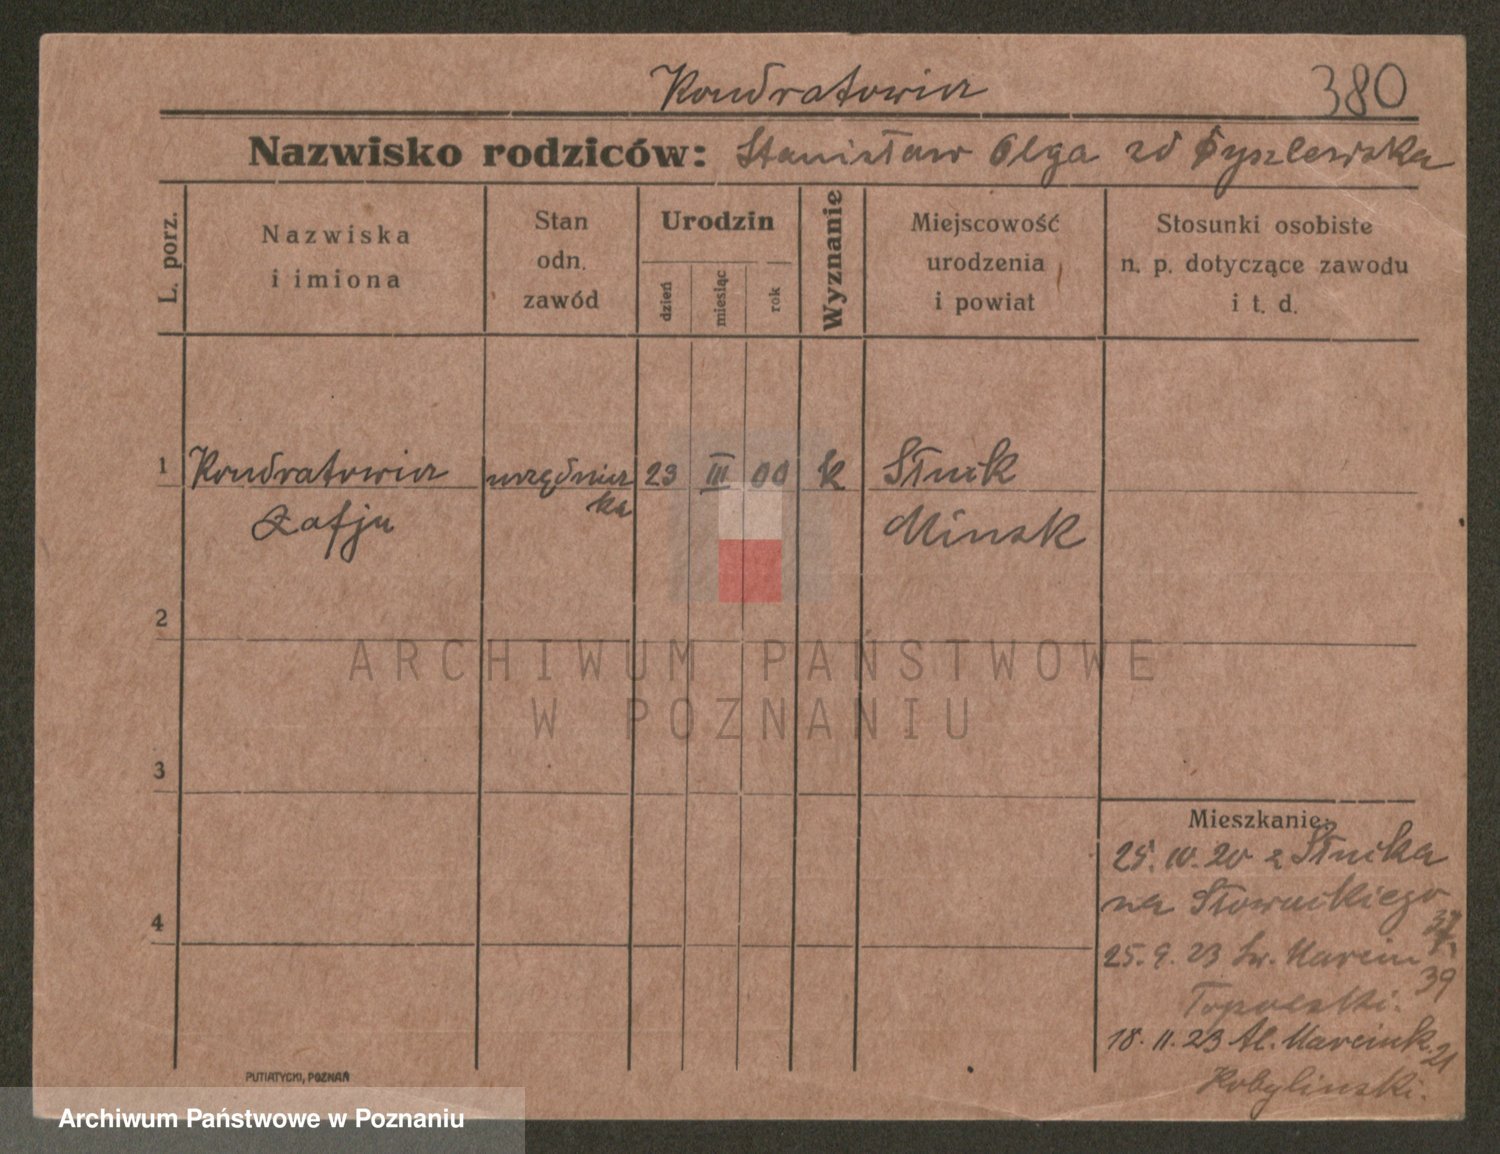 Kondratowicz
380
Nazwisko rodziców: Stanisław Olga zd Cyszlewska
L. porz.
Nazwiska
i imiona
Stan
odn.
zawód
Urodzin
dzień
miesiąc
rok
Wyznanie
Miejscowość
urodzenia
i powiat
Stosunki osobiste
n. p. dotyczące zawodu
i t. d.
1 Kondratowicz urzędnicz 23 III 00 k Słuck
Zofja ka Minsk
2
ARCHIWUM PAŃSTWOWE
W POZNANIU
3
Mieszkanie:
25. IV. 20 z Słucka
na Słowackiego
37
4
25. 9. 23 Św. Marcin 39
18. 11. 23 Al. Marcink. 21
Kobyliński.
PUTIATYCKI, POZNAŃ
Archiwum Państwowe w Poznaniu